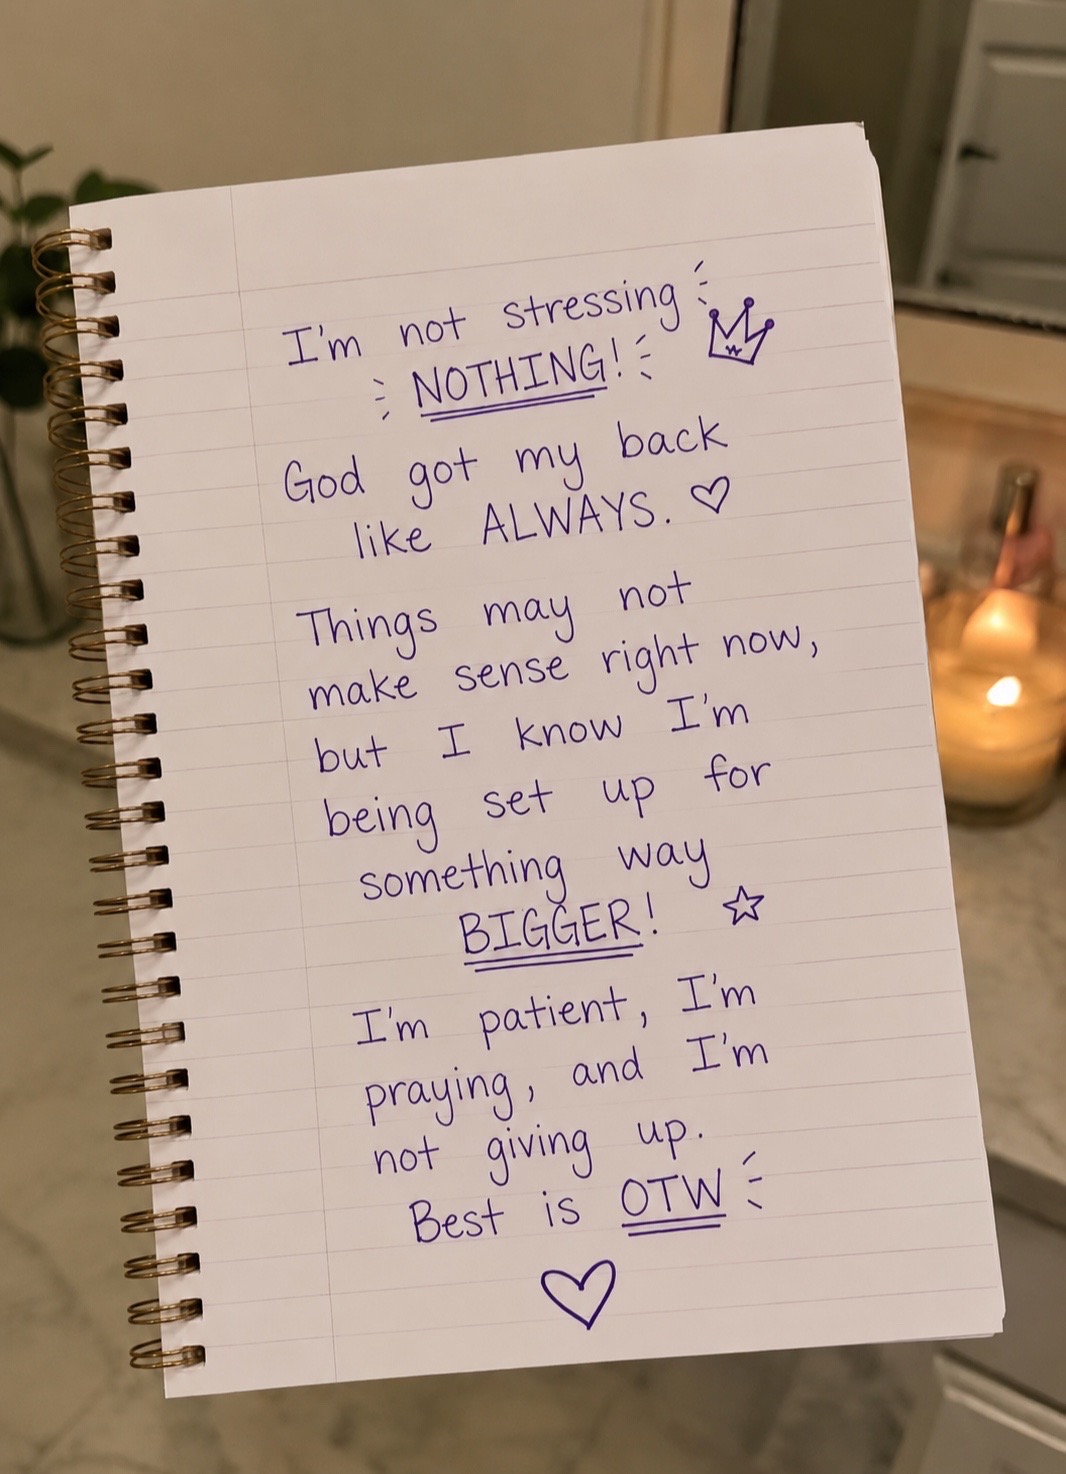 I'm not stressing
NOTHING!
God got my back
like ALWAYS. ♡
Things may not
make sense right now,
but I know I'm
being set up for
something way
BIGGER! ☆
I'm patient, I'm
praying, and I'm
not giving up.
Best is OTW
♡